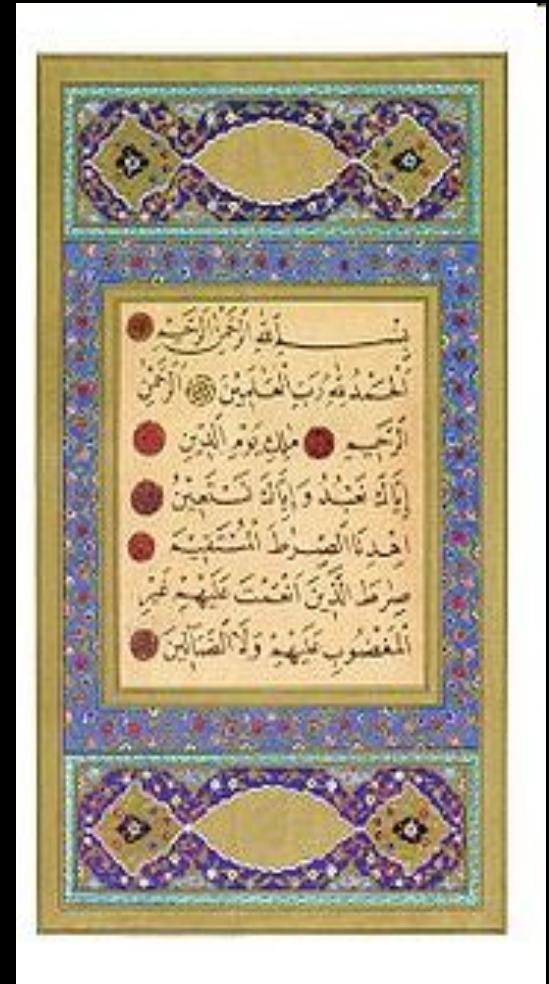 بِسْمِ ٱللَّهِ ٱلرَّحْمَٰنِ ٱلرَّحِيمِ
ٱلْحَمْدُ لِلَّهِ رَبِّ ٱلْعَٰلَمِينَ ٱلرَّحْمَٰنِ
ٱلرَّحِيمِ مَٰلِكِ يَوْمِ ٱلدِّينِ
إِيَّاكَ نَعْبُدُ وَإِيَّاكَ نَسْتَعِينُ
ٱهْدِنَا ٱلصِّرَٰطَ ٱلْمُسْتَقِيمَ
صِرَٰطَ ٱلَّذِينَ أَنْعَمْتَ عَلَيْهِمْ غَيْرِ
ٱلْمَغْضُوبِ عَلَيْهِمْ وَلَا ٱلضَّآلِّينَ